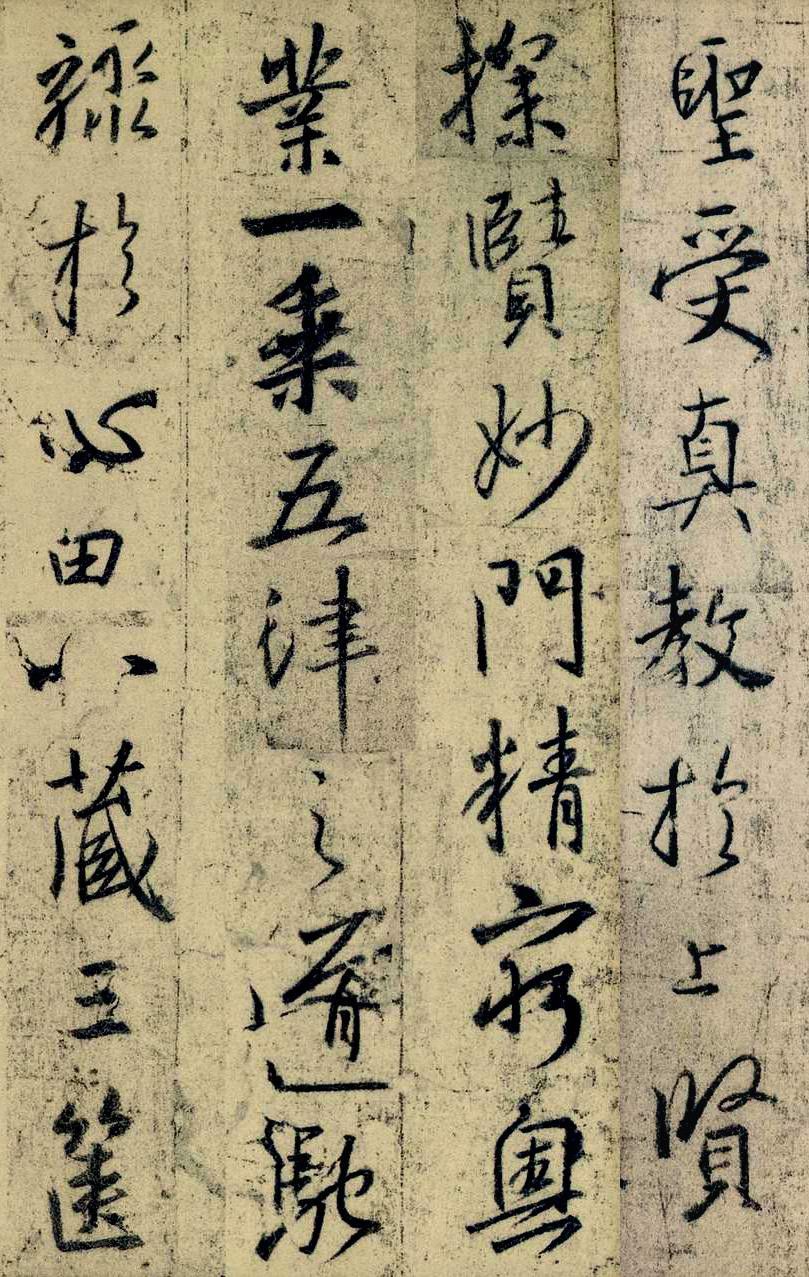 聖受真教於上賢
探賾妙門精窮奧
業一乘五律之道馳
驟於心田八藏三篋